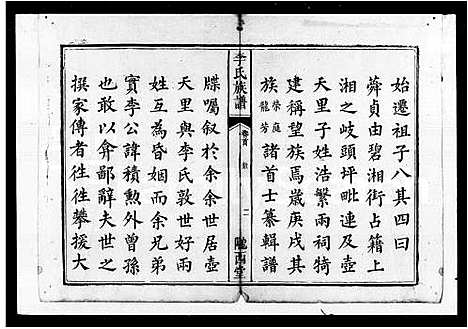 始遷祖子八其四曰
蕣貞由碧湘街占籍上
湘之歧頭坪毗連及壺
天里子姓浩繁兩祠犄
建稱望族焉歲庚戌其
族榮庭龍芳諸首士纂輯譜
李氏族譜
卷首
敘
二
隴西堂
牒囑叙於余余世居壺
天里與李氏敦世好兩
姓互為昏姻而余兄弟
實李公諱積勲外曾孫
也敢以弇鄙辭夫世之
撰家傳者往往攀援大